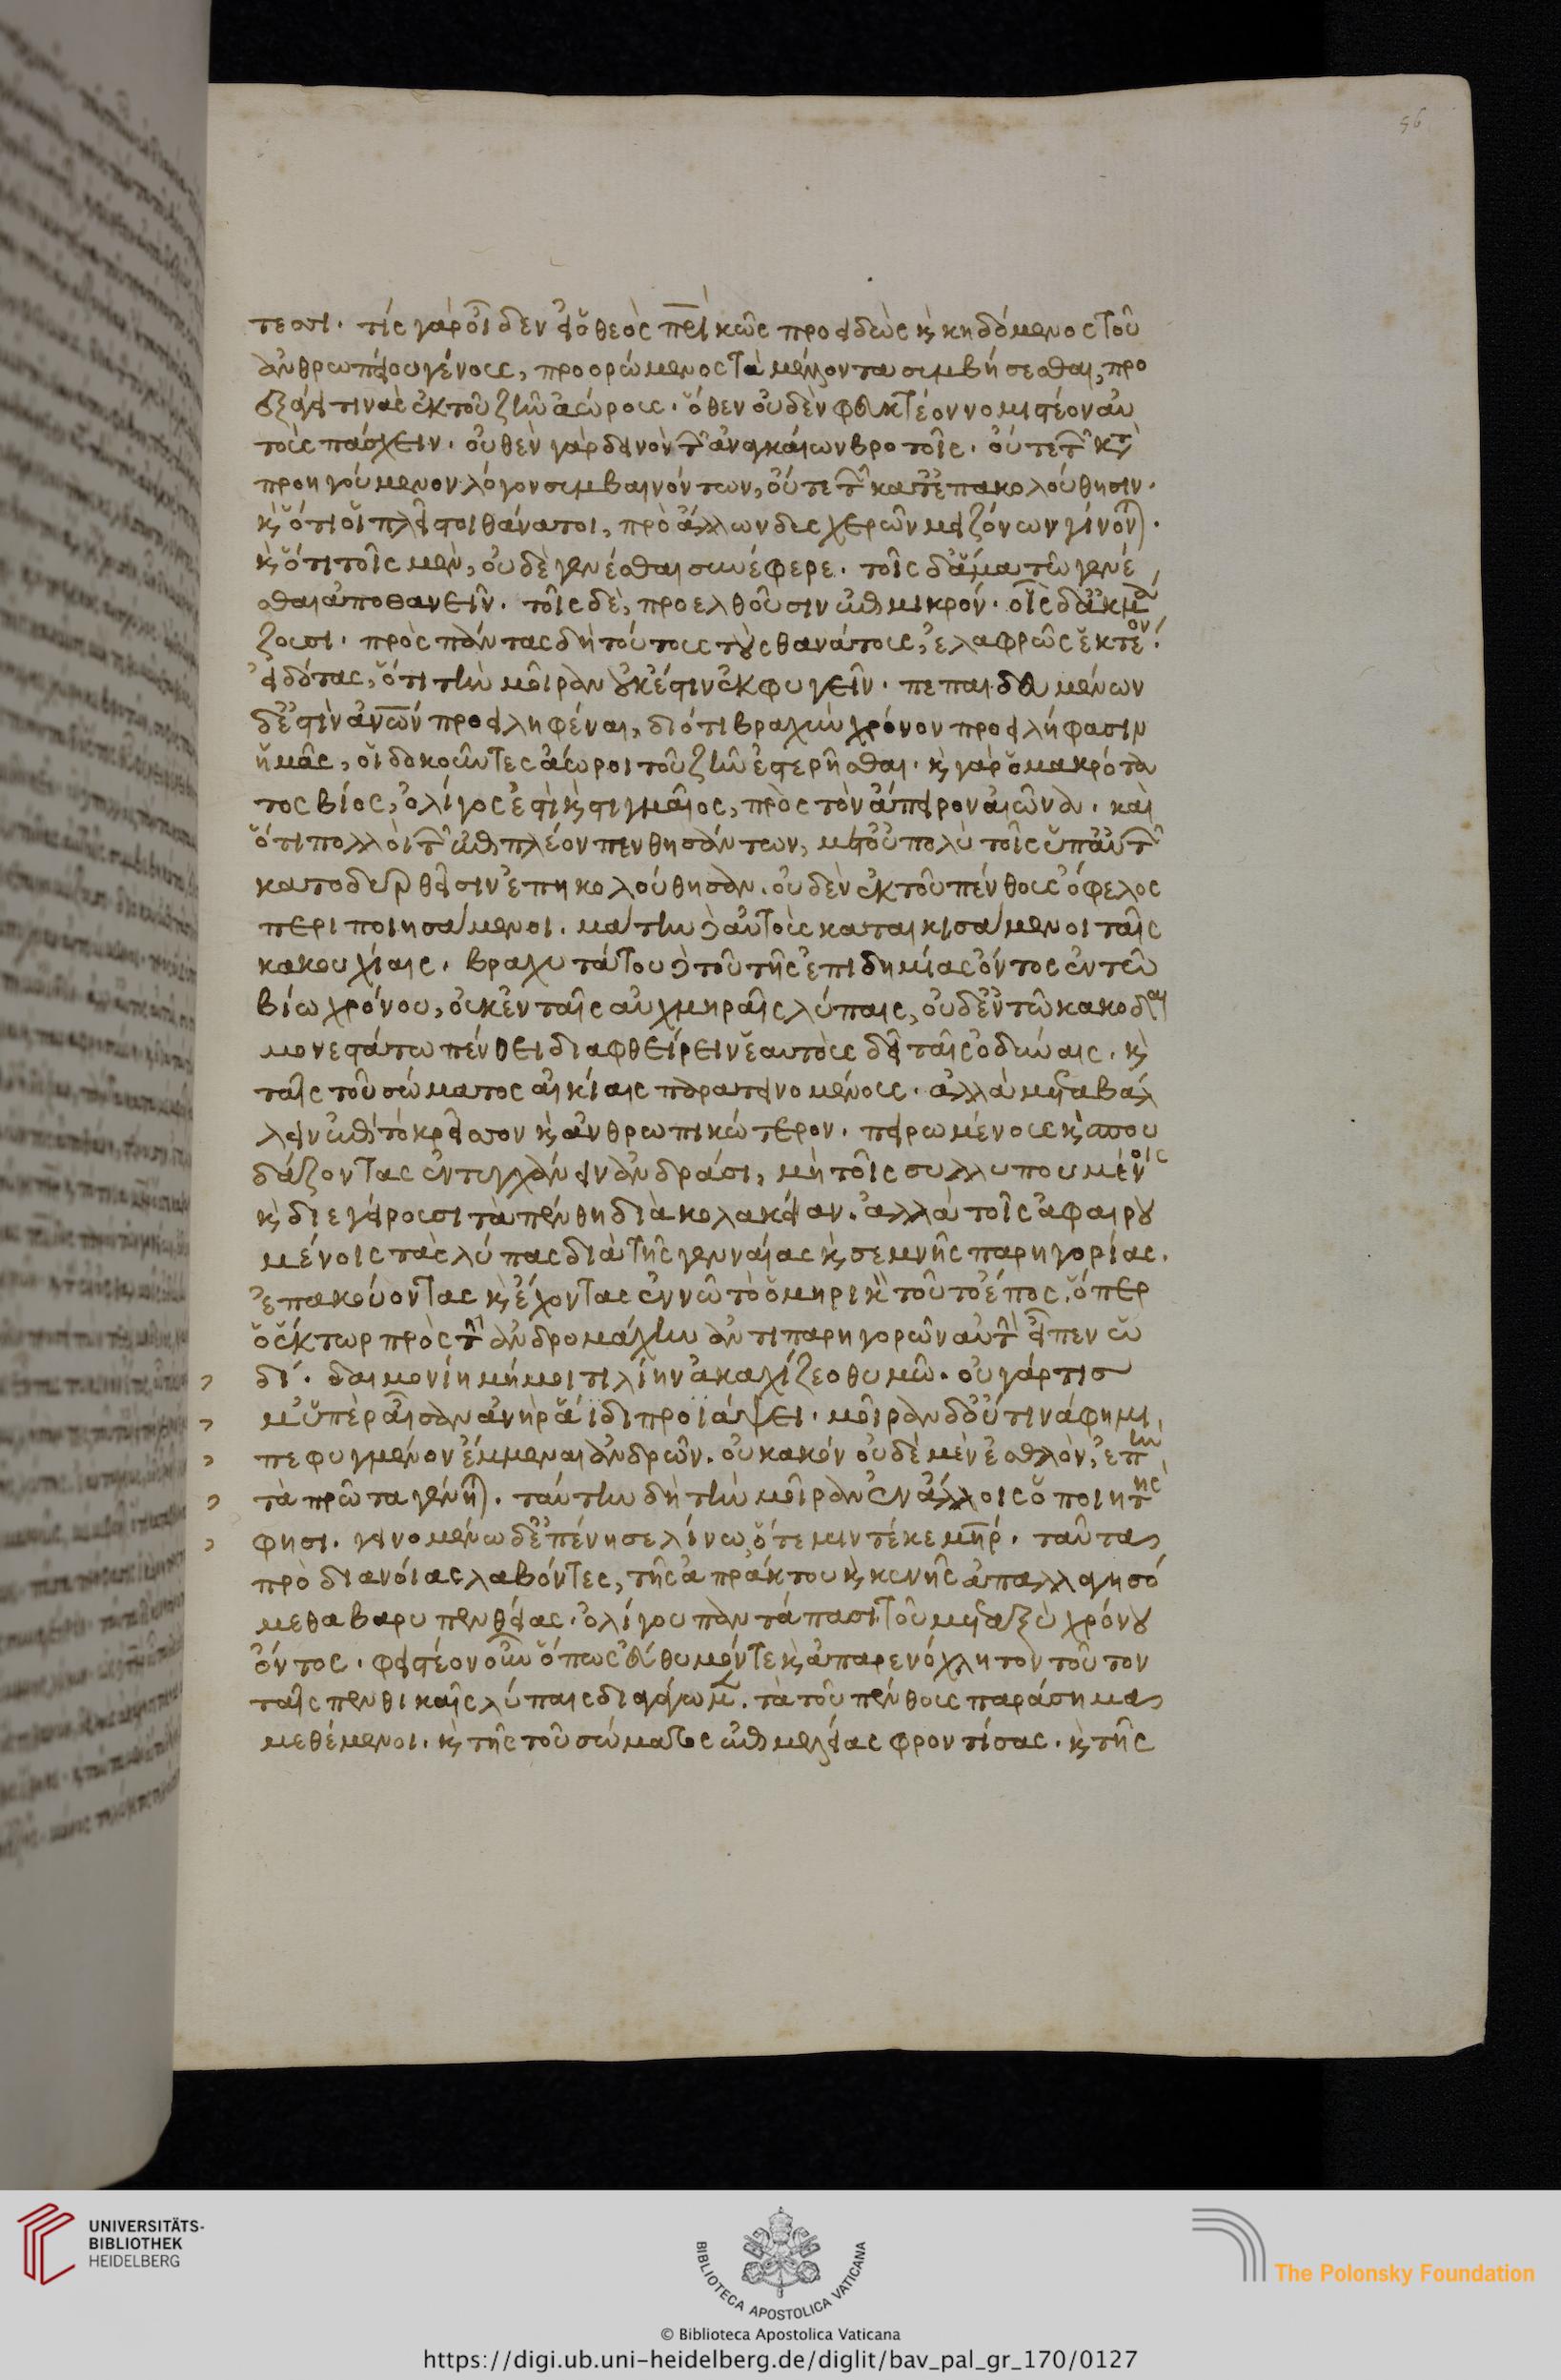 56
τεσι· τίς γὰρ οἶδεν εἰ ὁ θεὸς πρικῶς προειδὼς κ κηδόμενος τοῦ
ἀνθρωπείου γένους, προορώμενος τὰ μέλλοντα συμβήσεσθαι, προ
εξάγει τινὰς ἐκ τοῦ ζῆν ἀώρους· ὅθεν οὐδὲν φευκτέον νομιστέον αὐ
τοὺς πάσχειν· οὐθὲν γὰρ δεινὸν τῶν ἀναγκαίων βροτοῖς· οὔτε τῶν κτ
προηγούμενον λόγον συμβαινόντων, οὔτε τῶν κατ ἐπακολούθησιν·
κ ὅτι οἱ πλεῖστοι θάνατοι, πρὸ ἄλλων δυσχερῶν μειζόνων γίνονται·
κ ὅτι τοῖς μὲν, οὐδὲ γενέσθαι συνέφερε· τοῖς δ ἅμα τῷ γενέ
σθαι ἀποθανεῖν· τοῖς δὲ, προελθοῦσιν ἐπὶ μικρόν· τοῖς δ ἀκμά
ζουσι· πρὸς πάντας δὴ τούτους τοὺς θανάτους, ἐλαφρῶς ἑκτέον·
εἰδότας, ὅτι τὴν μοῖραν οὐκ ἔστιν ἐκφυγεῖν· πεπαιδευμένων
δ ἐστὶν ἀνων προσειληφέναι, διότι βραχὺν χρόνον προειλήφασιν
ἡμᾶς, οἱ δοκοῦντες ἄωροι τοῦ ζῆν ἐστερῆσθαι· κ γὰρ ὁ μακρότα
τος βίος, ὀλίγος ἐστὶ κ στιγμαῖος, πρὸς τὸν ἄπειρον αἰῶνα· καὶ
ὅτι πολλοὶ τῶν ἐπὶ πλέον πενθησάντων, μετ οὐ πολὺ τοῖς ὑπ αὐτῶν
κατοδυρθεῖσιν ἐπηκολούθησαν· οὐδὲν ἐκ τοῦ πένθους ὄφελος
περιποιησάμενοι· μάτην δὲ αὑτοὺς καταικισάμενοι ταῖς
κακουχίαις· βραχυτάτου δὲ τοῦ τῆς ἐπιδημίας ὄντος ἐν τῷ
βίω χρόνου, οὐκ ἐν ταῖς αὐχμηραῖς λύπαις, οὐδ ἐν τῷ κακοδαι
μονεστάτω πένθει διαφθείρειν ἑαυτοὺς δεῖ ταῖς ὀδύναις· κ
ταῖς τοῦ σώματος αἰκίαις παρατεινομένους· ἀλλὰ μεταβάλ
λειν ἐπὶ τὸ κρεῖσσον κ ἀνθρωπικώτερον· πειρωμένους κ σπου
δάζοντας ἐντυγχάνειν ἀνδράσι, μὴ τοῖς συλλυπουμένοις
κ διεγείρουσι τὰ πένθη διὰ κολακείαν· ἀλλὰ τοῖς ἀφαιρου
μένοις τὰς λύπας διὰ τῆς γενναίας κ σεμνῆς παρηγορίας·
ἐπακούοντας κ ἔχοντας ἐν νῷ τὸ ὁμηρικὸν τοῦτο ἔπος, ὅπερ
ὁ ἕκτωρ πρὸς τὴν ἀνδρομάχην ἀντιπαρηγορῶν αὐτὴν εἶπεν ὧ
δί· δαιμονίη μή μοι τι λίην ἀκαχίζεο θυμῷ· οὐ γάρ τις
μ ὑπὲρ αἶσαν ἀνὴρ ἄϊδι προϊάψει· μοῖραν δ οὔ τινά φημι
πεφυγμένον ἔμμεναι ἀνδρῶν· οὐ κακόν οὐδὲ μὲν ἐσθλὸν, ἐπὴν
τὰ πρῶτα γένηται· ταύτην δὴ τὴν μοῖραν ἐν ἄλλοις ὁ ποιητής
φησι· γεινομένω δ ἐπένησε λίνω, ὅτε μιν τέκε μηρ· ταῦτα
πρὸ διανοίας λαβόντες, τῆς ἀπράκτου κ κενῆς ἀπαλλαγησό
μεθα βαρυπενθείας· ὀλίγου παντάπασι τοῦ μεταξὺ χρόνου
ὄντος· φειστέον οὖν ὅπως εὔθυμόν τε κ ἀπαρενόχλητον τοῦτον
ταῖς πενθικαῖς λύπαις διαγάγωμεν· τὰ τοῦ πένθους παράσημα
μεθέμενοι· κ τῆς τοῦ σώματος ἐπιμελείας φροντίσας· κ τῆς
UNIVERSITÄTS-
BIBLIOTHEK
HEIDELBERG
BIBLIOTECA APOSTOLICA VATICANA
The Polonsky Foundation
© Biblioteca Apostolica Vaticana
https://digi.ub.uni-heidelberg.de/diglit/bav_pal_gr_170/0127